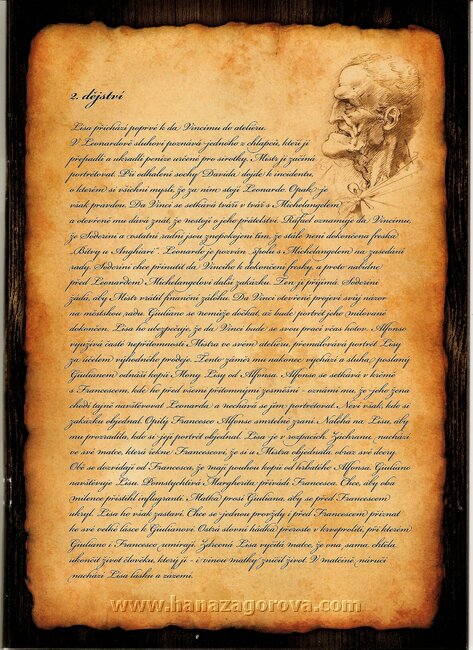 2. dějství
Lisa přichází poprvé k da Vincimu do ateliéru.
V Leonardově sluhovi poznává jednoho z chlapců, kteří ji
přepadli a ukradli peníze určené pro sirotky. Mistr ji začíná
portrétovat. Při odhalení sochy Davida dojde k incidentu,
o kterém si všichni myslí, že za ním stojí Leonardo. Opak je
však pravdou. Da Vinci se setkává tváří v tvář s Michelangelem
a otevřeně mu dává znát, že nestojí o jeho přátelství. Rafael oznamuje da Vincimu,
že Soderini a ostatní radní jsou znepokojeni tím, že stále není dokončena freska
„Bitvy u Anghiari“. Leonardo je pozván spolu s Michelangelem na zasedání
rady. Soderini chce přinutit da Vinciho k dokončení fresky, a proto nabídne
před Leonardem Michelangelovi další zakázku. Ten ji přijímá. Soderini
žádá, aby Mistr vrátil finanční zálohu. Da Vinci otevřeně projeví svůj názor
na městskou radu. Giuliano se nemůže dočkat, až bude portrét jeho milované
dokončen. Lisa ho ubezpečuje, že da Vinci bude se svou prací včas hotov. Alfonso
využívá časté nepřítomnosti Mistra ve svém ateliéru, přemalovává portrét Lisy
za účelem výhodného prodeje. Tento záměr mu nakonec vychází a sluha poslaný
Giulianem odnáší kopii Mony Lisy od Alfonsa. Alfonso se setkává v krčmě
s Francescem, kde ho před všemi přítomnými zesměšní - oznámí mu, že jeho žena
chodí tajně navštěvovat Leonarda a nechává se jím portrétovat. Neví však, kdo si
zakázku objednal. Opilý Francesco Alfonse smrtelně zraní. Naléhá na Lisu, aby
mu prozradila, kdo si její portrét objednal. Lisa je v rozpacích. Záchranu nachází
ve své matce, která řekne Francescovi, že si u Mistra objednala obraz své dcery.
Obě se dozvídají od Francesca, že mají pouhou kopii od hrbatého Alfonsa. Giuliano
navštěvuje Lisu. Pomstychtivá Margherita přivádí Francesca. Chce, aby oba
milence přistihl inflagranti. Matka prosí Giuliana, aby se před Francescem
ukryl. Lisa ho však zastaví. Chce se jednou provždy i před Francescem přiznat
ke své velké lásce k Giulianovi. Ostrá slovní hádka přeroste v krveprolití, při kterém
Giuliano i Francesco umírají. Zdrcená Lisa vyčítá matce, že ona sama, chtěla
ukončit život člověku, který jí - i vinou matky zničil život. V matčině náručí
nachází Lisa lásku a zázemí.
www.hanazagorova.com